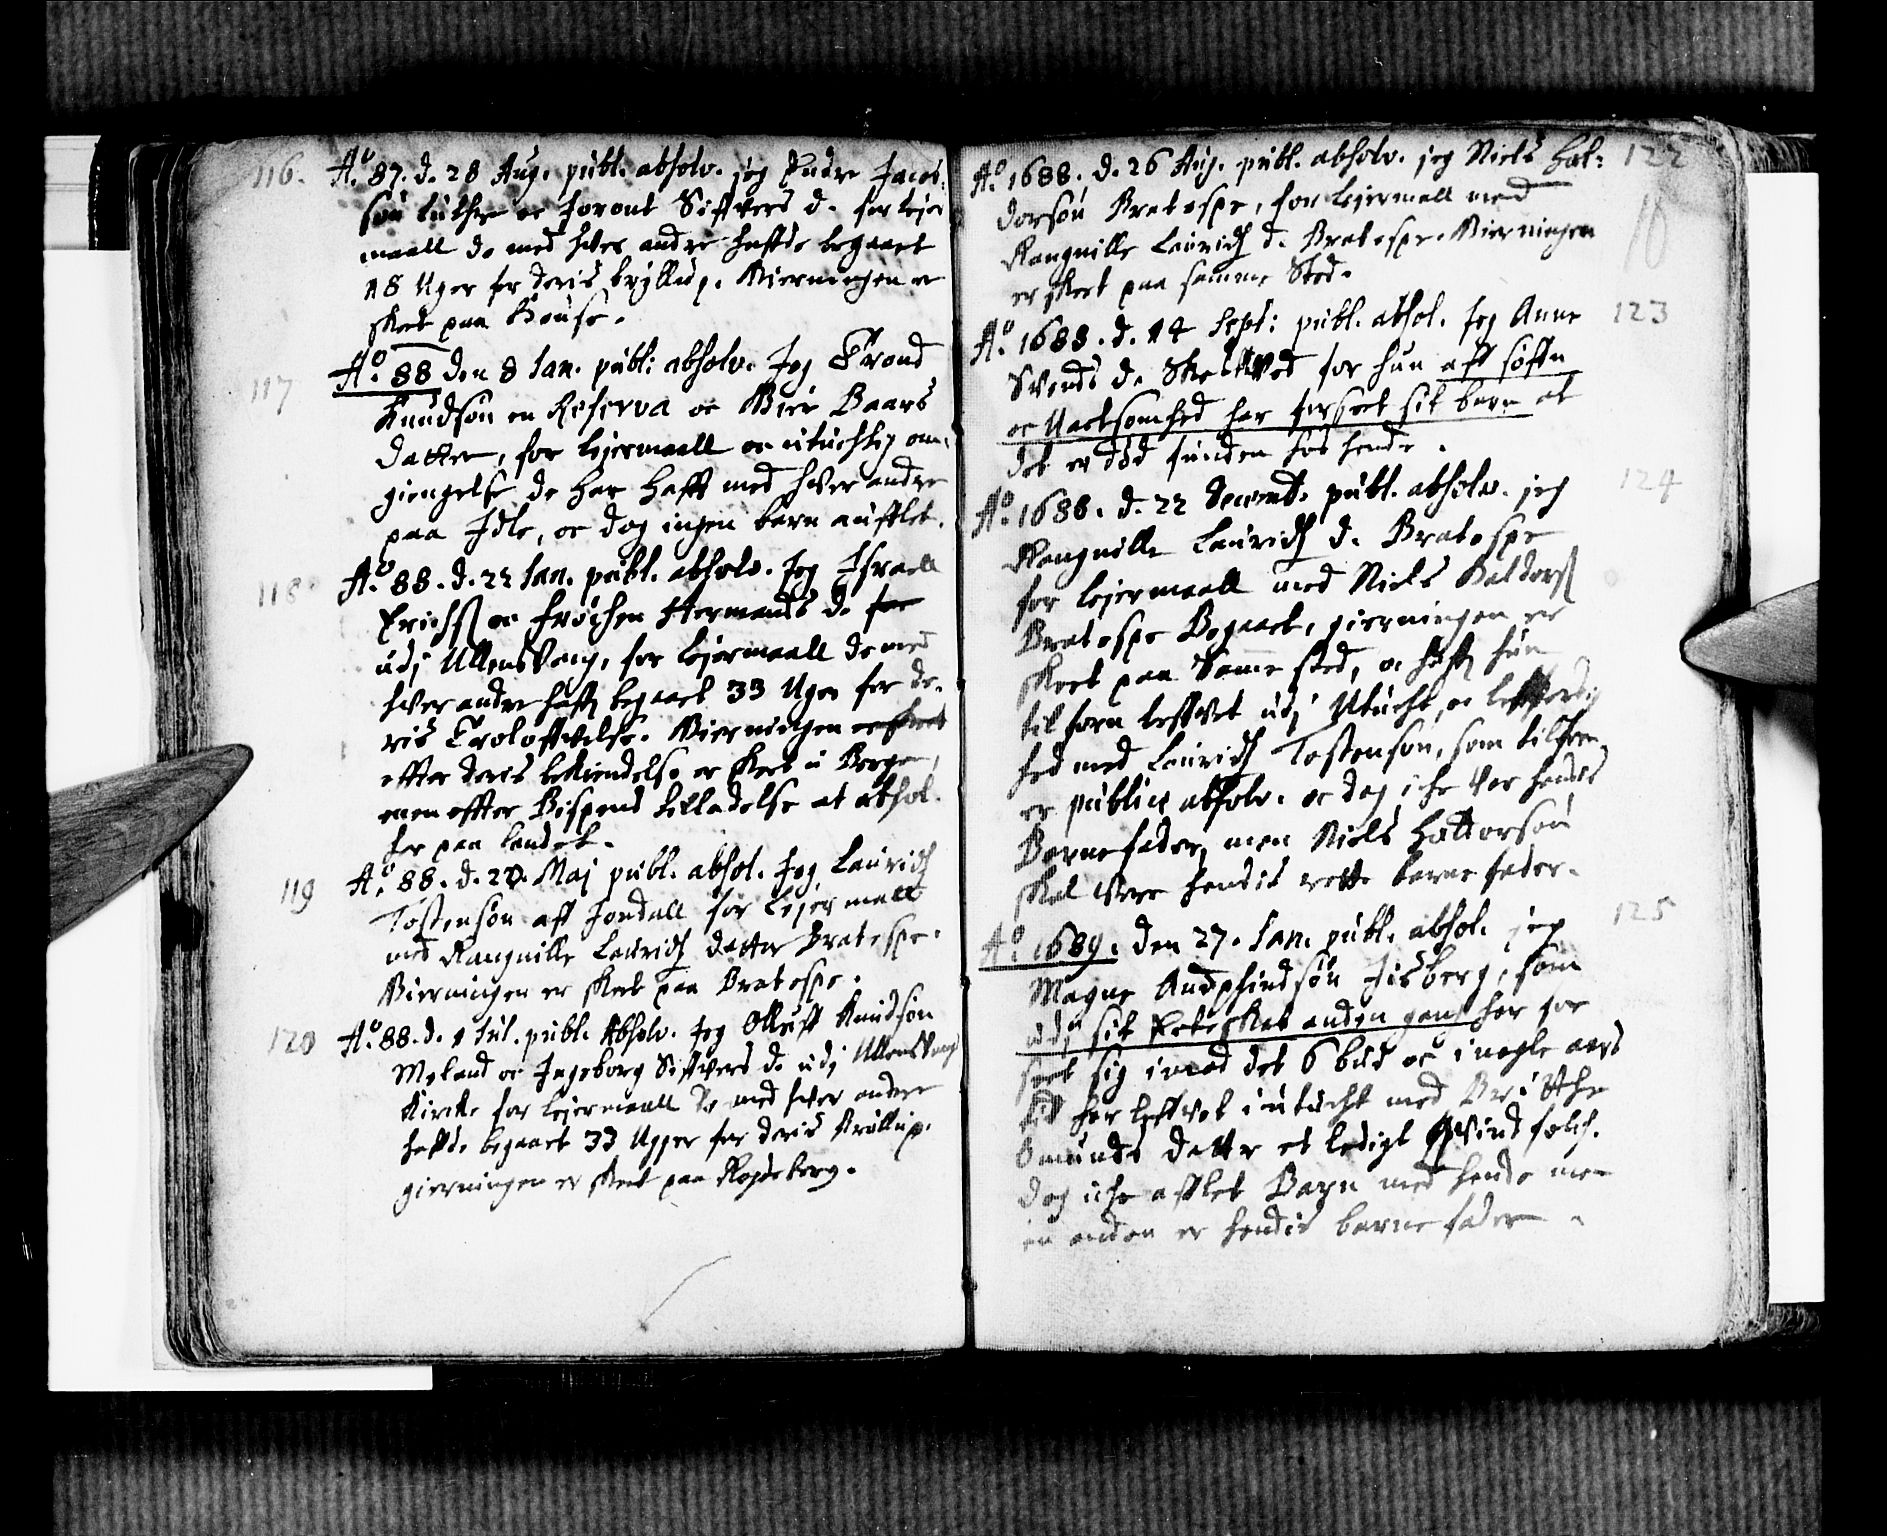 116. Ao. 87. d. 28 Aug. publ. absolv. jeg Peder Jacob-
søn Luthre oc Joront Siffvers d. for lejer
maall de med hver andre haffde begaaet
18 Uger for deris bryllup. Gierningen er
skeed paa House.
117 Ao. 88 den 8 Jan. publ: absolv. Jeg Trond
Knudsøn en Reserva oc Giør Baars
datter, for lejermaall oc utuchtig om-
giengelse de har hafft med hver andre
paa Idle, oc dog ingen barn aufflet.
118 Ao. 88. d. 22 Jan. publ. absolv. Jeg Israell
Erichs. oc Frøichen Hermands d. for
udj Ullensvang, for lejermaall de med
hver andre hafft begaaet 33 Uger for de-
ris Troloffvelse. Gierningen er skeed
effter deris bekiendelse er skeed i Bergen,
men effter Bispens tilladelse at absol.
her paa landet.
119 Ao. 88. d. 20. Maj publ. absol. Jeg Laurids
Tostensøn aff Jondall for Lejermall
med Rangnille Laurids datter Bratespe.
Gierningen er skeed paa Bratespe.
120 Ao. 88. d. 1 Jul. publ. Absolv. Jeg Olluff Knudsøn
Meland oc Ingeborg Siffvers d. udj Ullensvang
Kircke for lejermaall de med hver andre
haffde begaaet 33 Ugger for deris Brøllup.
gierningen er skeet paa Rogdeberg.
Ao. 1688. d. 26 Aug. publ. absolv. jeg Niels Hal- 122
dorsøn Bratespe, for lejermall med
Rangnille Laurids d. Bratespe. Gierningen
er skeet paa samme Sted.
Ao. 1688. d. 14 Sept: publ. absol. Jeg Anne 123
Svends d. for hun aff søffn
oc Uactsomhed har forseet sit barn at
det er død funden hos hende.
Ao. 1688. d. 22 Decemb. publ. absolv. jeg 124
Rangnille Laurids d. Bratespe
for lejermaall med Niels Haldors.
Bratespe Begaaet, gierningen er
skeet paa Samme sted, oc hafft hun
tilforn leffvet udj Utucht, oc letferdig
hed med Laurids Tostensøn, som tilforn
er publice absolv. oc dog iche var hendis
Barnefader, men Niels Haldorsøn
skal være hendis rette barnefader.
Ao. 1689. den 27. Jan. publ. absol. jeg 125
Magne Andphindsøn Jisberg, som
udj sit Ecteskab anden gang har for
seet sig imod det 6 bud oc i nogle aars
tid har leffvet i utucht med Brithe
Omunds datter et ledigt Qvindfolch.
dog iche afflet Barn med hende men
en anden er hendis barnefader.